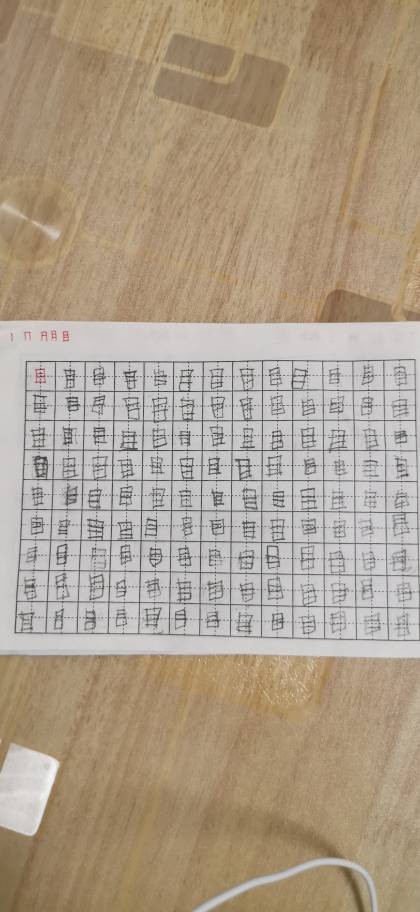 丨 冂 月 月 目
目 目 目 目 目 目 目 目 目 目 目 目 目
目 目 目 目 目 目 目 目 目 目 目 目 目
目 目 目 目 目 目 目 目 目 目 目 目 目
目 目 目 目 目 目 目 目 目 目 目 目 目
目 目 目 目 目 目 目 目 目 目 目 目 目
目 目 目 目 目 目 目 目 目 目 目 目 目
目 目 目 目 目 目 目 目 目 目 目 目 目
目 目 目 目 目 目 目 目 目 目 目 目 目
目 目 目 目 目 目 目 目 目 目 目 目 目